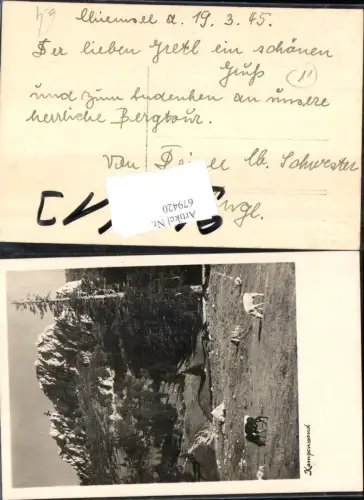 Chiemsee d. 19.3.45.
Der lieben Gretl ein schönen
Gruß
und zum Andenken an unsere
herrliche Bergtour.
Von Deiner lb. Schwester
Artikel Nr.
679420
Kampenwand